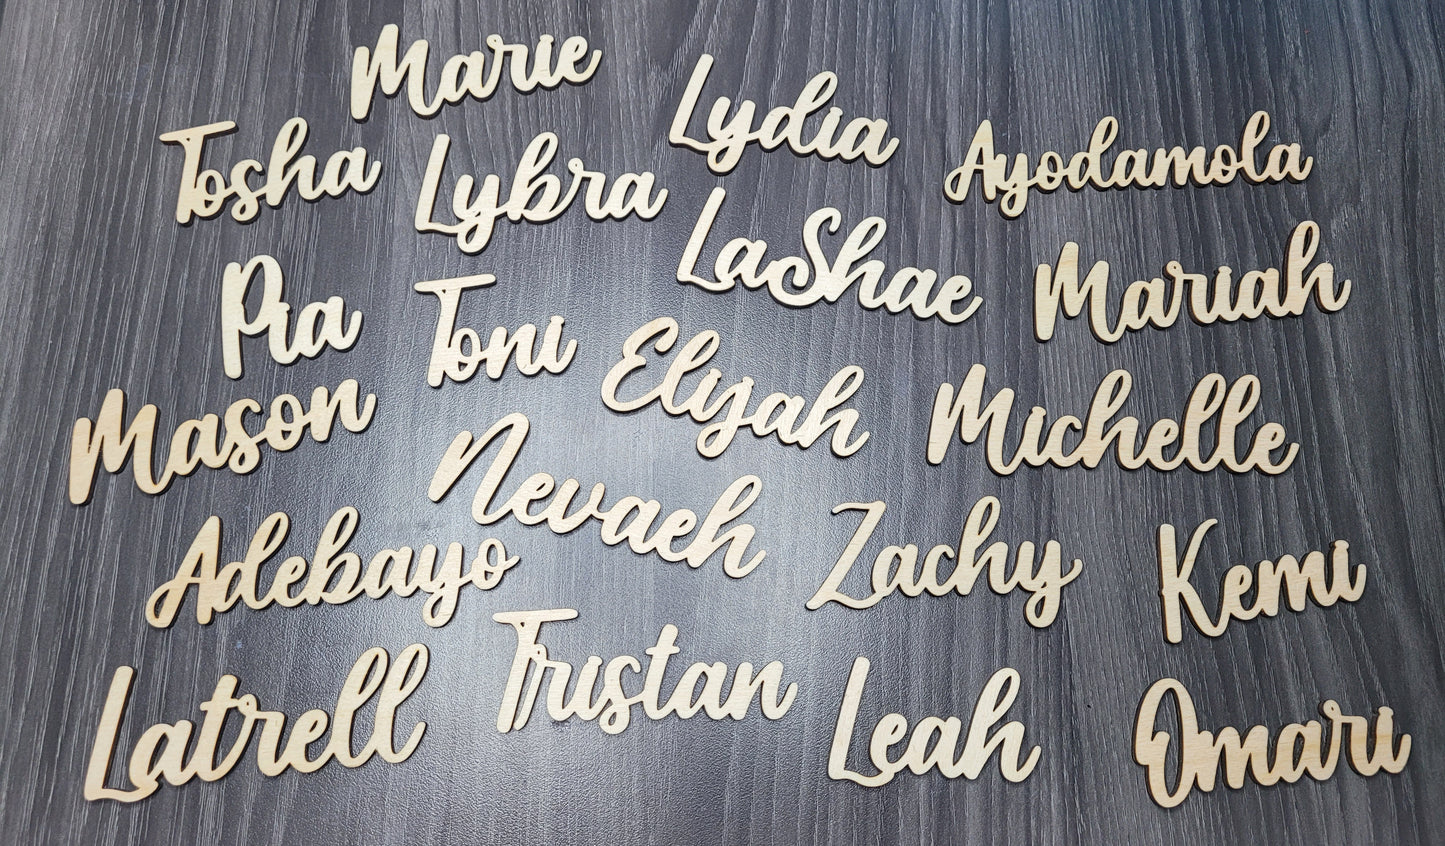 Marie
Lydia
Tosha
Lybra
Ayodamola
LaShae
Pia
Toni
Mariah
Elijah
Mason
Michelle
Nevaeh
Adebayo
Zachy
Kemi
Latrell
Tristan
Leah
Omari